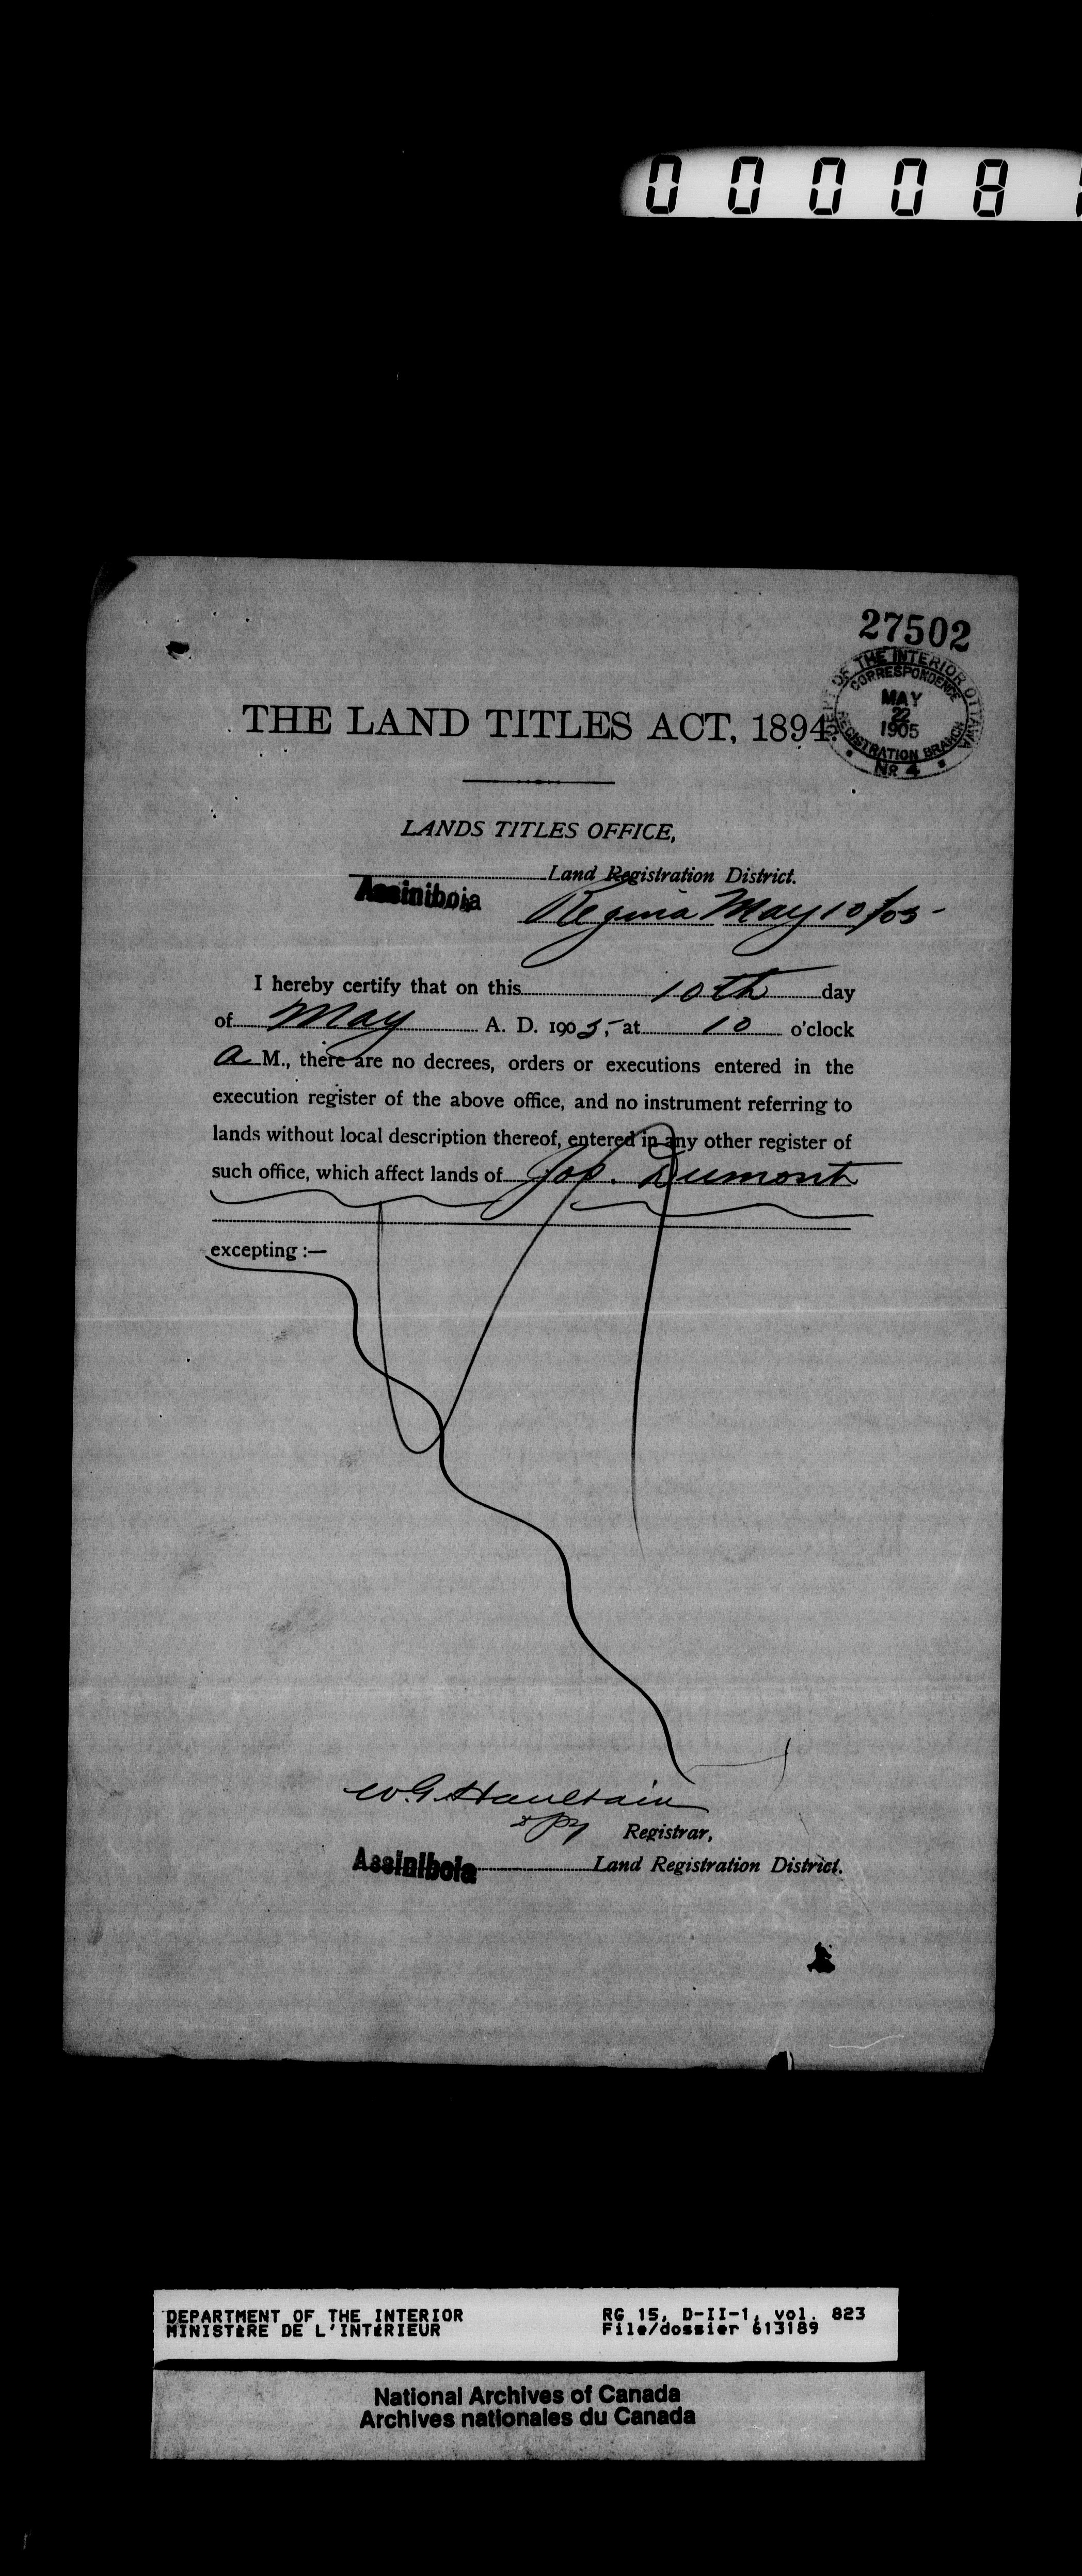 00008
27502
DEPT OF THE INTERIOR OTTAWA
CORRESPONDENCE
MAY
22
1905
REGISTRATION BRANCH
NR 4
THE LAND TITLES ACT, 1894.
LANDS TITLES OFFICE,
Land Registration District.
Assiniboia
Regina May 10/05-
I hereby certify that on this 10th day
of May A. D. 1905, at 10 o'clock
a M., there are no decrees, orders or executions entered in the
execution register of the above office, and no instrument referring to
lands without local description thereof, entered in any other register of
such office, which affect lands of Jos. Dumont
excepting :—
W.G. Haultain
Dpy Registrar,
Assiniboia Land Registration District.
DEPARTMENT OF THE INTERIOR RG 15, D-II-1, vol. 823
MINISTÈRE DE L'INTÉRIEUR File/dossier 613189
National Archives of Canada
Archives nationales du Canada